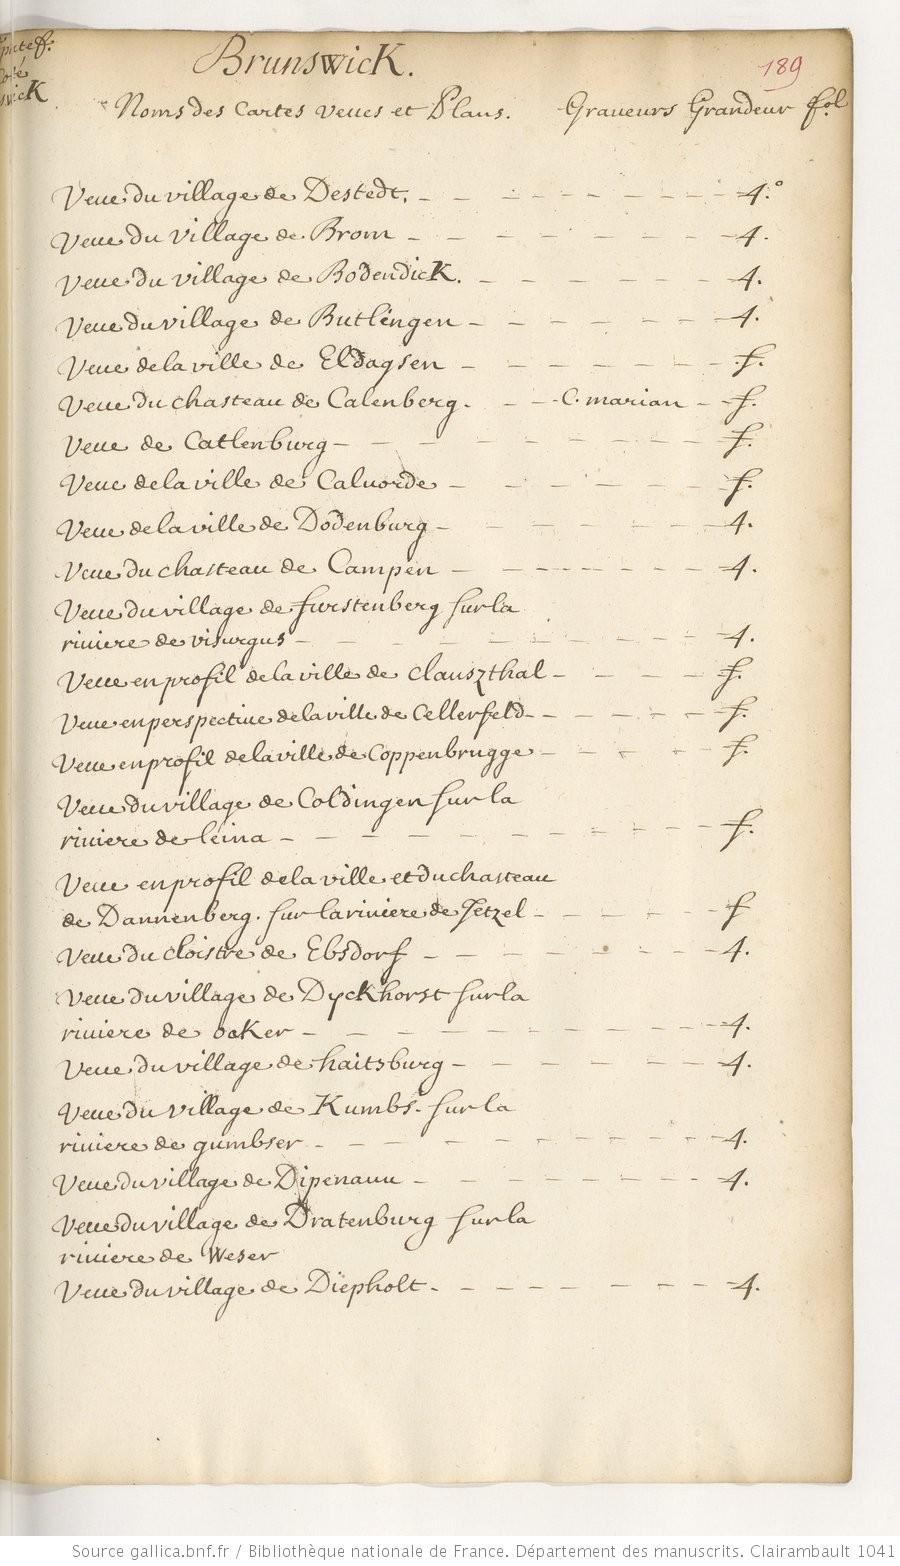 Brunswick.
189
Noms des Cartes veues et Plans. Graueurs Grandeur fol
Veue du village de Destedt. - - - - - - - - 4.°
Veue du village de Brom - - - - - - - 4.
Veue du village de Bodendick. - - - - - - 4.
Veue du village de Butlingen - - - - - - 4.
Veue de la ville de Eldagsen - - - - - - - f.
Veue du chasteau de Calenberg. - - - C. marian - f.
Veue de Catlenburg - - - - - - - - f.
Veue de la ville de Caluorde - - - - - - f.
Veue de la ville de Dodenburg - - - - - - 4.
Veue du chasteau de Campen - - - - - - - 4.
Veue du village de furstenberg sur la
riuiere de visurgus - - - - - - - - - 4.
Veue en profil de la ville de Clauszthal - - - - - f.
Veue en perspectiue de la ville de Cellerfeld - - - - - f.
Veue en profil de la ville de Coppenbrugge - - - - - f.
Veue du village de Coldingen sur la
riuiere de leina - - - - - - - - - - f.
Veue en profil de la ville et du chasteau
de Dannenberg. sur la riuiere de Jetzel - - - - - f
Veue du cloistre de Ebsdorf - - - - - - - 4.
Veue du village de Dyckhorst sur la
riuiere de ocker - - - - - - - - - - 4.
Veue du village de haitsburg - - - - - - - 4.
Veue du village de Kumbs. sur la
riuiere de gumbser - - - - - - - - - 4.
Veue du village de Dipenauu - - - - - - - 4.
Veue du village de Dratenburg sur la
riuiere de Weser
Veue du village de Diepholt - - - - - - - - 4.
Source gallica.bnf.fr / Bibliothèque nationale de France. Département des manuscrits. Clairambault 1041